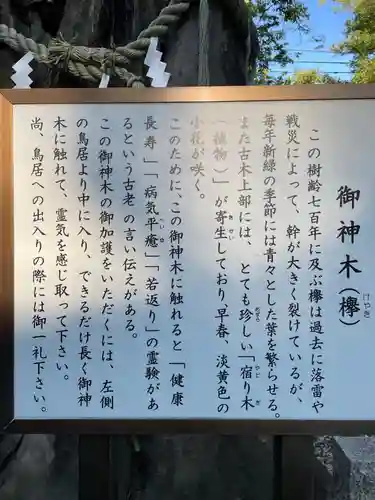 御神木(欅)
けやき
この樹齢七百年に及ぶ欅は過去に落雷や
戦災によって、幹が大きく裂けているが、
毎年新緑の季節には青々とした葉を繁らせる。
また古木上部には、とても珍しい「宿り木
めずら
やどぎ
(植物)」が寄生しており、早春、淡黄色の
きせい
小花が咲く。
このために、この御神木に触れると「健康
長寿」「病気平癒」「若返り」の霊験があ
へいゆ
るという古老の言い伝えがある。
この御神木の御加護をいただくには、左側
の鳥居より中に入り、できるだけ長く御神
木に触れて、霊気を感じ取って下さい。
尚、鳥居への出入りの際には御一礼下さい。